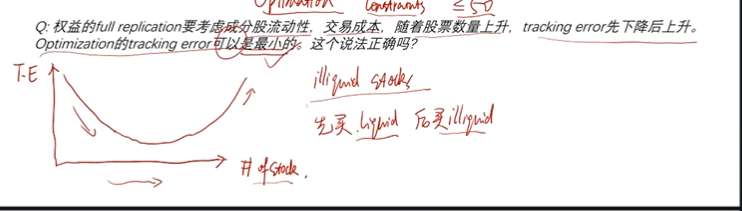 Optimization constraints ≤50
Q: 权益的full replication要考虑成分股流动性，交易成本，随着股票数量上升，tracking error先下降后上升。
Optimization的tracking error可以是最小的。这个说法正确吗？
T.E
illiquid stocks
先买.liquid 后买illiquid
# of stock.